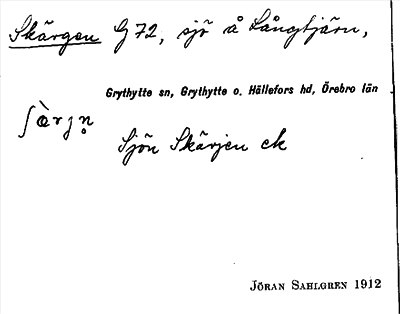 Skärgen G 72, sjö å Långtjärn,
Grythytte sn, Grythytte o. Hällefors hd, Örebro län
ʃæ̀rjn̥
Sjön Skärjen ek
JÖRAN SAHLGREN 1912